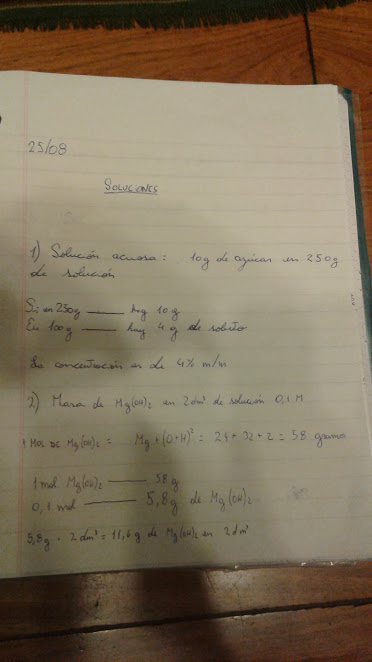 25/08
SOLUCIONES
1) Solución acuosa: 10g de azúcar en 250g
de solución
Si en 250g —— hay 10 g
En 100g —— hay 4 g de soluto
La concentración es de 4% m/m
2) Masa de Mg(OH)₂ en 2dm³ de solución 0,1 M
1 MOL DE Mg(OH)₂ = Mg + (O+H)² = 24 + 32 + 2 = 58 gramos
1 mol Mg(OH)₂ —— 58 g
0,1 mol —— 5,8g de Mg(OH)₂
5,8g · 2dm³ = 11,6 g de Mg(OH)₂ en 2dm³